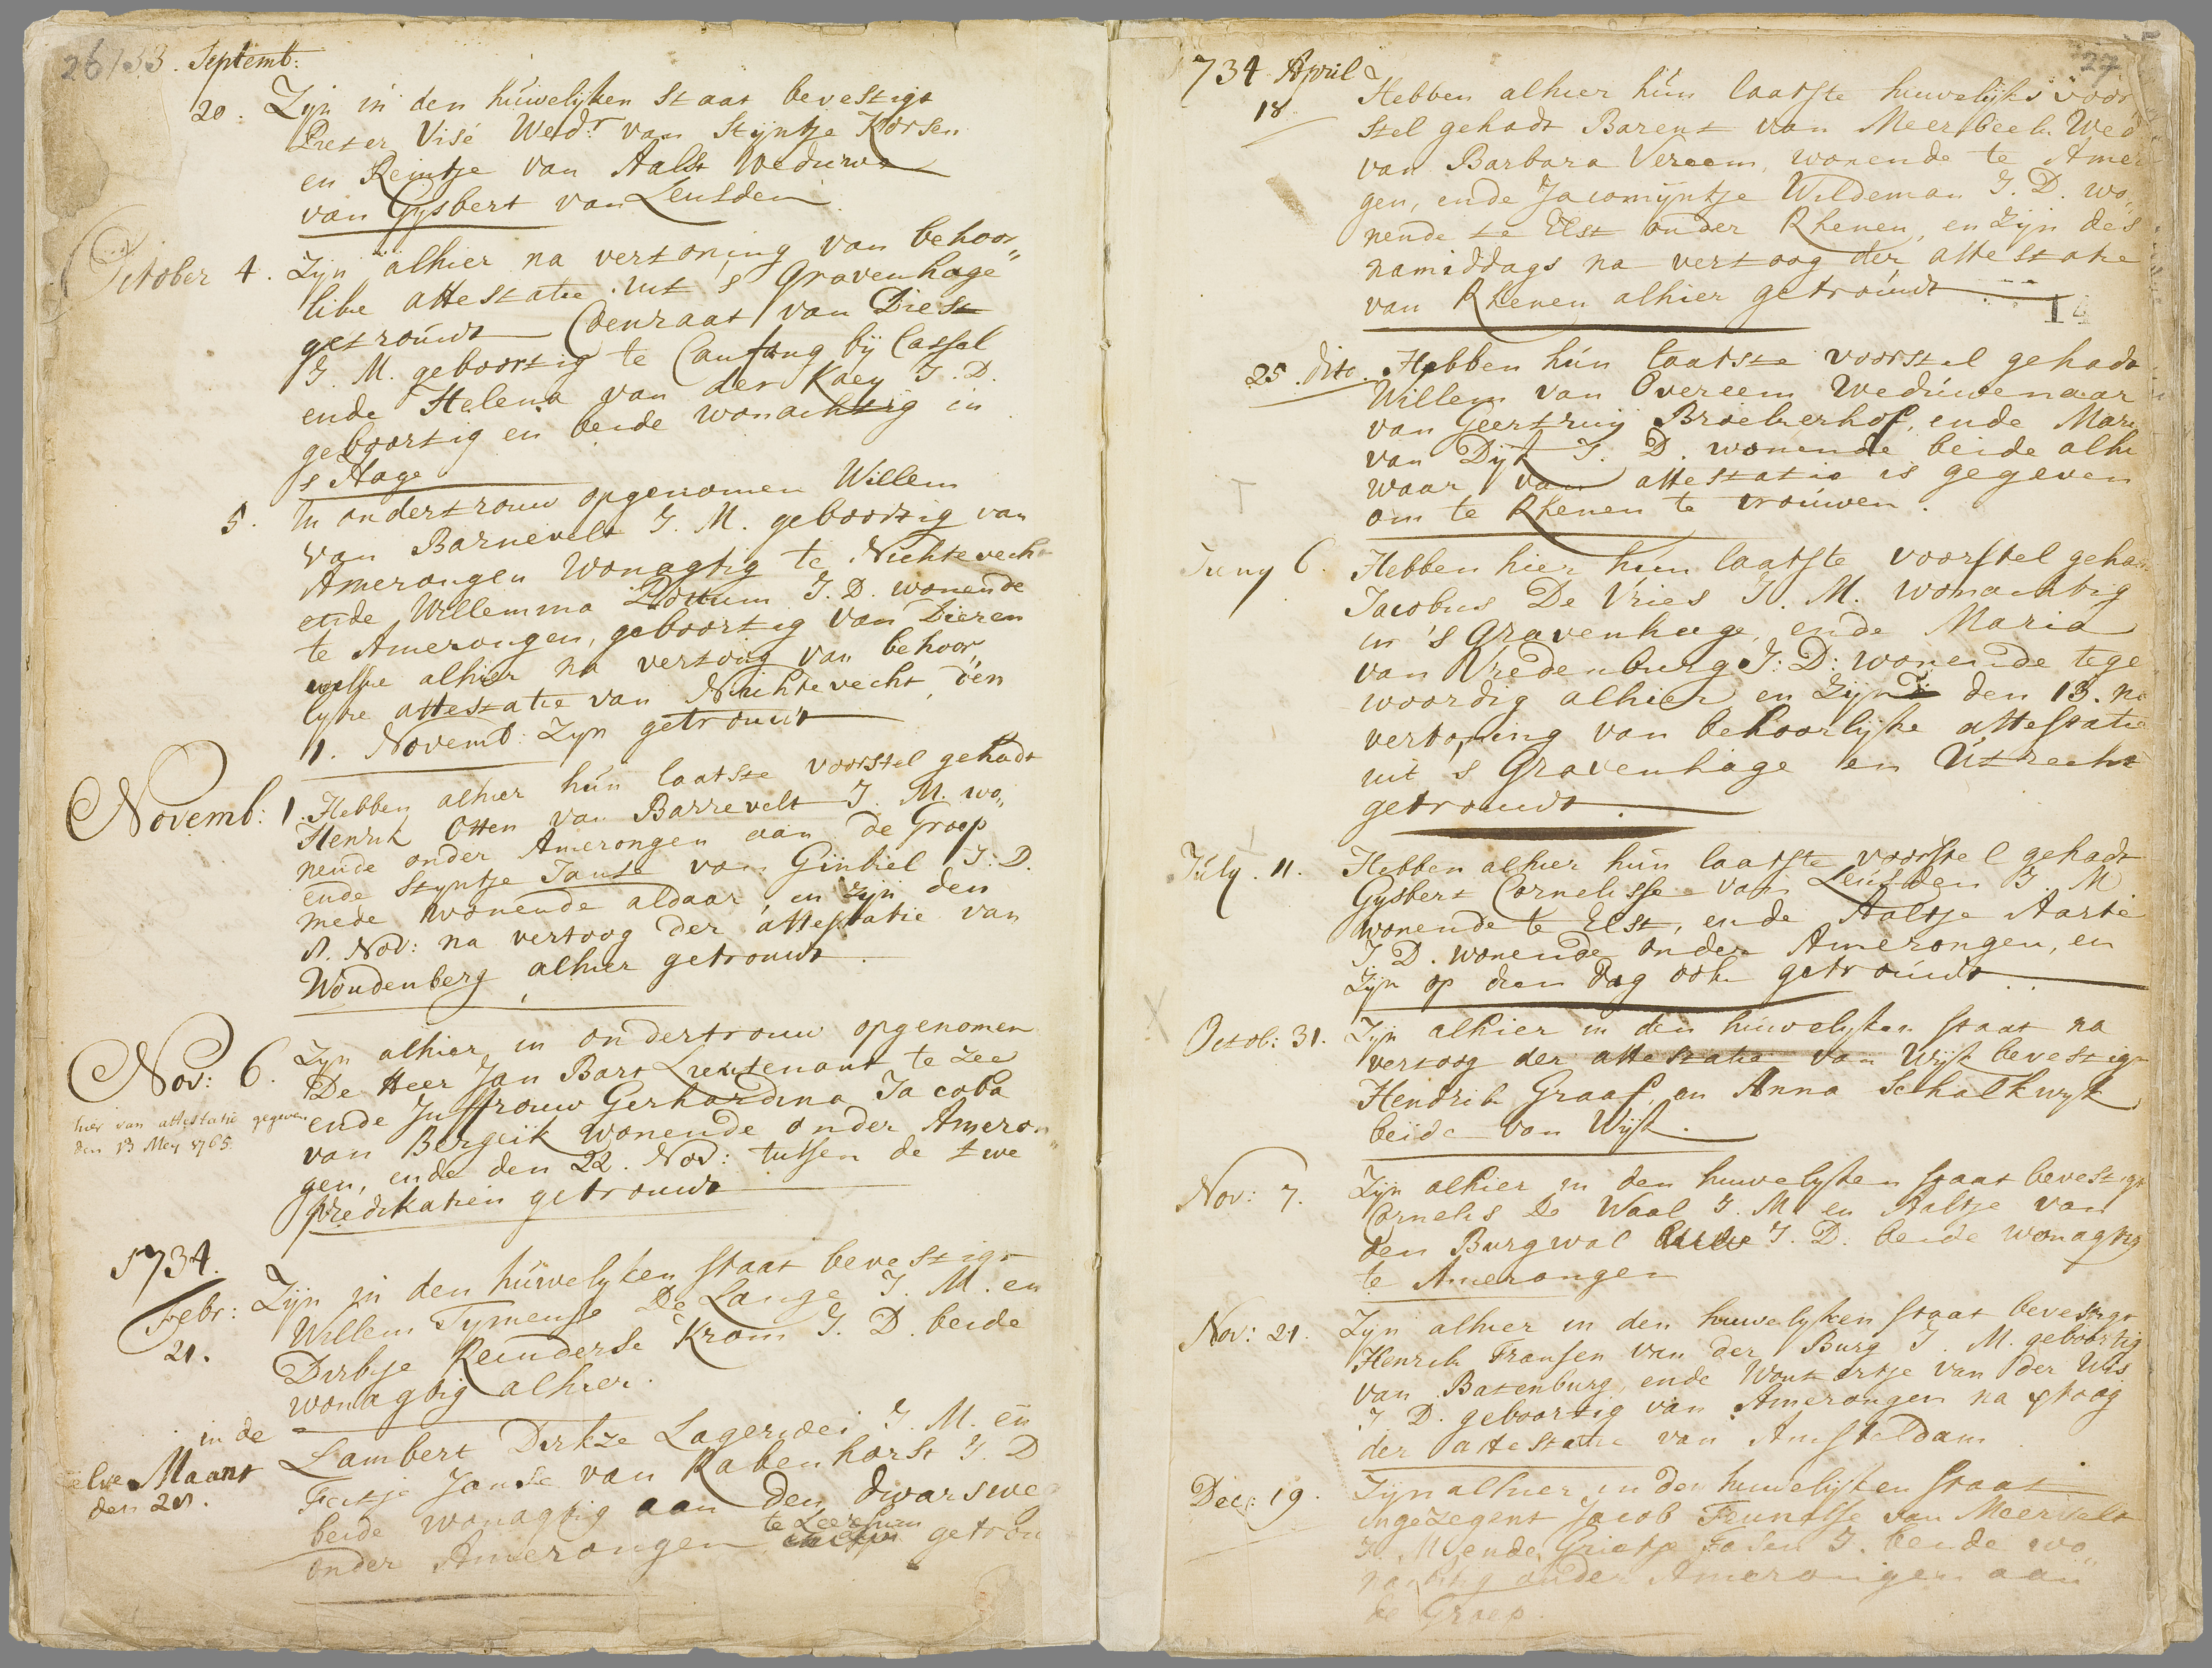 26
1733. Septemb:
20. Zijn in den húwelijken staat bevestigt
Pieter Visé Wedr. van Stijntje Korsen
en Reintje van Aalst Weduwe
van Gysbert van Leusden.
October 4. Zijn alhier na vertoning van behoor„
like attestatie uit s Gravenhage
getroúwt Coenraat van Diest
J. M. geboortig te Caufung bij Cassel
ende Helena van der Kaey J. D.
geboortig en beide wonachtig in
s Hage
5. In ondertrouw opgenomen Willem
van Barnevelt J. M. geboortig van
Amerongen Wonagtig te Nichtevecht
ende Willemma J. D. wonende
te Amerongen, geboortig van Dieren
welke alhier na vertoning van behoor„
lyke attestatie van Nichtevecht, den
1. Novemb: Zyn getrouwt
Novemb: 1. Hebben alhier hún laatste voorstel gehadt
Henrik Otten van Barrevelt J. M. wo„
nende onder Amerongen aan de Groep
ende Styntje Janse van Ginkel J: D.
mede wonende aldaar, en zijn den
8. Nov: na vertoog der attestatie van
Woudenberg alhier getrouwt.
Nov: 6. Zyn alhier in ondertrouw opgenomen
De Heer Jan Bart Lieutenant te zee
ende Juffrouw Gerhardina Jacoba
hier van attestatie gegeven
den 13 Mey 1765.
van Bergeik wonende onder Ameron„
gen, ende den 22. Nov: tussen de twe
predikatien getrouwt
1734.
Febr: 21. Zijn in den húwelyken staat bevestigt
Willem Tymense De Lange J. M. en
Dirkje Reinderse Krom J. D. beide
wonagtig alhier.
in de
selve Maant
den 28.
Lambert Dirkze Lagerwei J. M. en
Feitje Janse van Rabenhorst J. D
beide wonagtig aan den dwarswe
onder Amerongen te Leersum getrou
27
1734 April
18. Hebben alhier hún laatste huwelijks voor
stel gehadt Barent van Meerbeek Wed
van Barbara Vereem, wonende te Amer
gen, ende Jacomijntje Wildeman J. D. wo„
nende te Elst onder Rhenen, en zijn des
namiddags na vertoog der attestatie
van Rhenen alhier getroúwt
25. dito. Hebben hún laatste voorstel gehadt
Willem van Overeem Wedúwenaar
van Geertruij Broekerhof, ende Mari
van Dijk J. D. wonende beide alhi
waar van attestatie is gegeven
om te Rhenen te troúwen.
Juny 6. Hebben hier hún laatste voorstel gehad
Jacobus De Vries J. M. wonachtig
in 's Gravenhage, ende Maria
van Vredenburg J: D: wonende tege
woordig alhier en zijn den 13. na
vertoning van behoorlijke attestatie
uit s Gravenhage en Útrecht
getrouwt.
Júly. 11. Hebben alhier hún laatste voorstel gehadt
Gysbert Cornelisse van Leusden J. M
wonende te Elst, ende Aaltje Aarte
J. D. wonende onder Amerongen, en
zijn op dien dag ook getroúwt
Octob: 31. Zijn alhier in den húwelyken staat na
vertoog der attestatie van Wijk bevestigt
Hendrik Graaf, en Anna Schalkwyk
beide van Wijk.
Nov: 7. Zijn alhier in den huwelyken staat bevestigt
Cornelis De Waal J. M. en Aaltje van
den Burgwal J. D. beide wonagtig
te Amerongen
Nov: 21. Zijn alhier in den huwelyken staat bevestigt
Henrik Fransen van der Burg J. M. geboortig
van Batenburg, ende Woutertje van der Wis
J. D. geboortig van Amerongen na vtoog
der attestatie van Amsteldam
Dec: 19. Zijn alhier in den huwelijken staat
ingezegent Jacob Teunisse van Meervelt
J. M. ende Grietje J. beide wo„
nachtig onder Amerongen aan
de Groep.